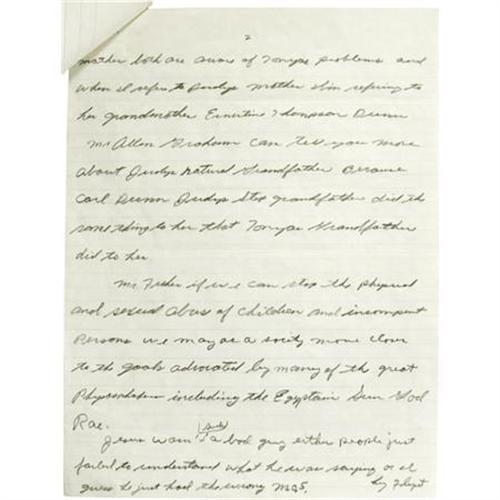 2
mother both are aware of Tonyas problems and
when I refer to Judys mother I'm refering to
her grandmother Ernestine Thompson Dunn
Mr Allen Grahamm can tell you more
about Judys natural Grandfather because
Carl Dunn Judys step grandfather did th
same thing to her that Tonyas Grandfather
did to her
Mr. Fisher if we can stop th physical
and sexual abuse of children and incompent
persons we may as a socity move closer
to th goals advocated by many of th great
including the Egyptain Sun God
Rae.
Jesus wasn't such a bad guy either people just
failed to understand what he was saying or el
guess he just had the wrong M.O.S. by